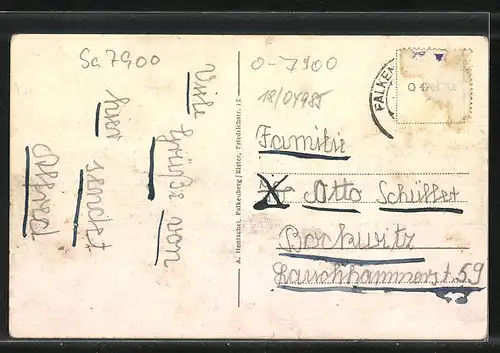 Sa 7900
Viele Grüße von
hier sendet
Alfred
A. Hentschel, Falkenberg/Elster, Friedrichstr. 12
0-7900
18/04985
FALKEN
Familie
Otto Schüller
Bockwitz
Lauchhammerst. 59